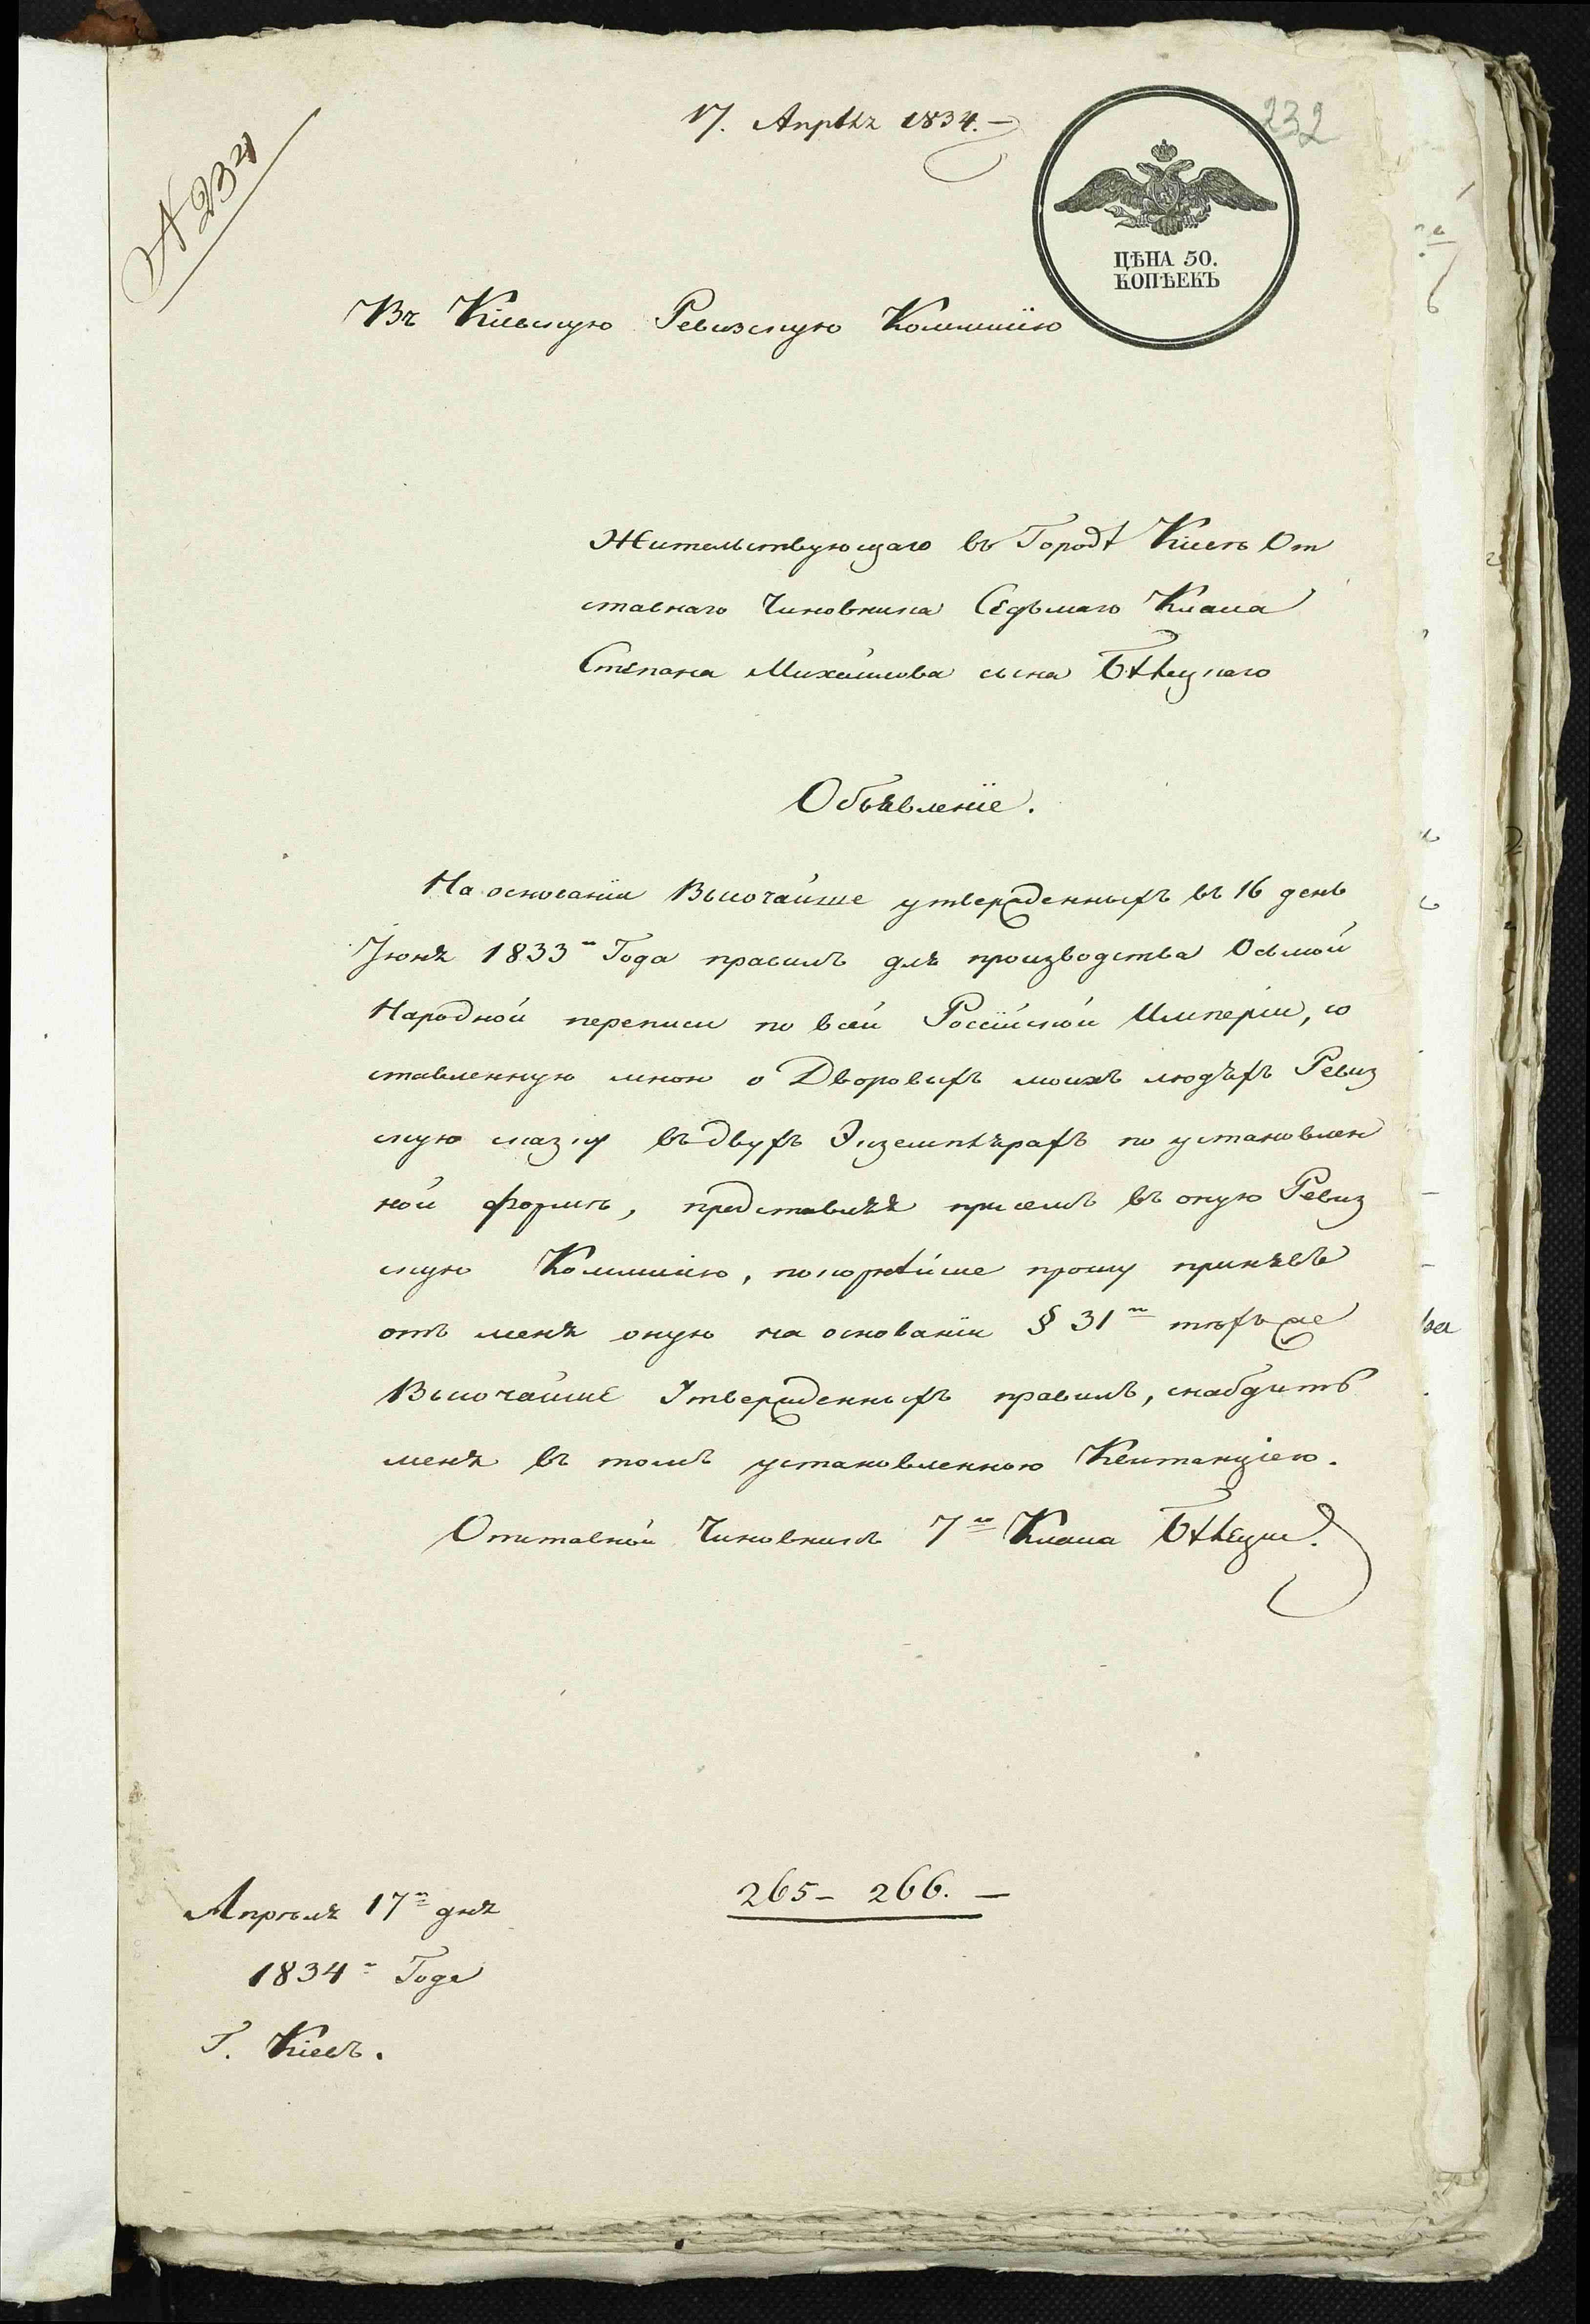 17. Апрѣля 1834.
232
№ 234
ЦѢНА 50.
КОПѢЕКЪ
Въ Кіевскую Ревизскую Коммисію
Жительствующаго въ Городѣ Кіевѣ От
ставнаго Чиновника Седьмаго Класа
Степана Михайлова сына
Объявленіе.
На основаніи Высочайше утвержденныхъ въ 16 день
Іюня 1833го Года правилъ для производства Осьмой
Народной переписи по всей Россійской Имперіи, со
ставленную мною о Дворовыхъ моихъ людяхъ Ревиз
скую сказку въ двухъ Экземплярахъ по установлен
ной формѣ, представляя присемъ въ оную Ревиз
скую Коммисію, покорнѣйше прошу принявъ
отъ меня оную на основаніи § 31го тѣхъ же
Высочайше Утвержденныхъ правилъ, снабдить
меня въ томъ установленною Квитанціею.
Отставной Чиновникъ 7го Класа
265 - 266. -
Апрѣля 17го дня
1834го Года
Г. Кіевъ.